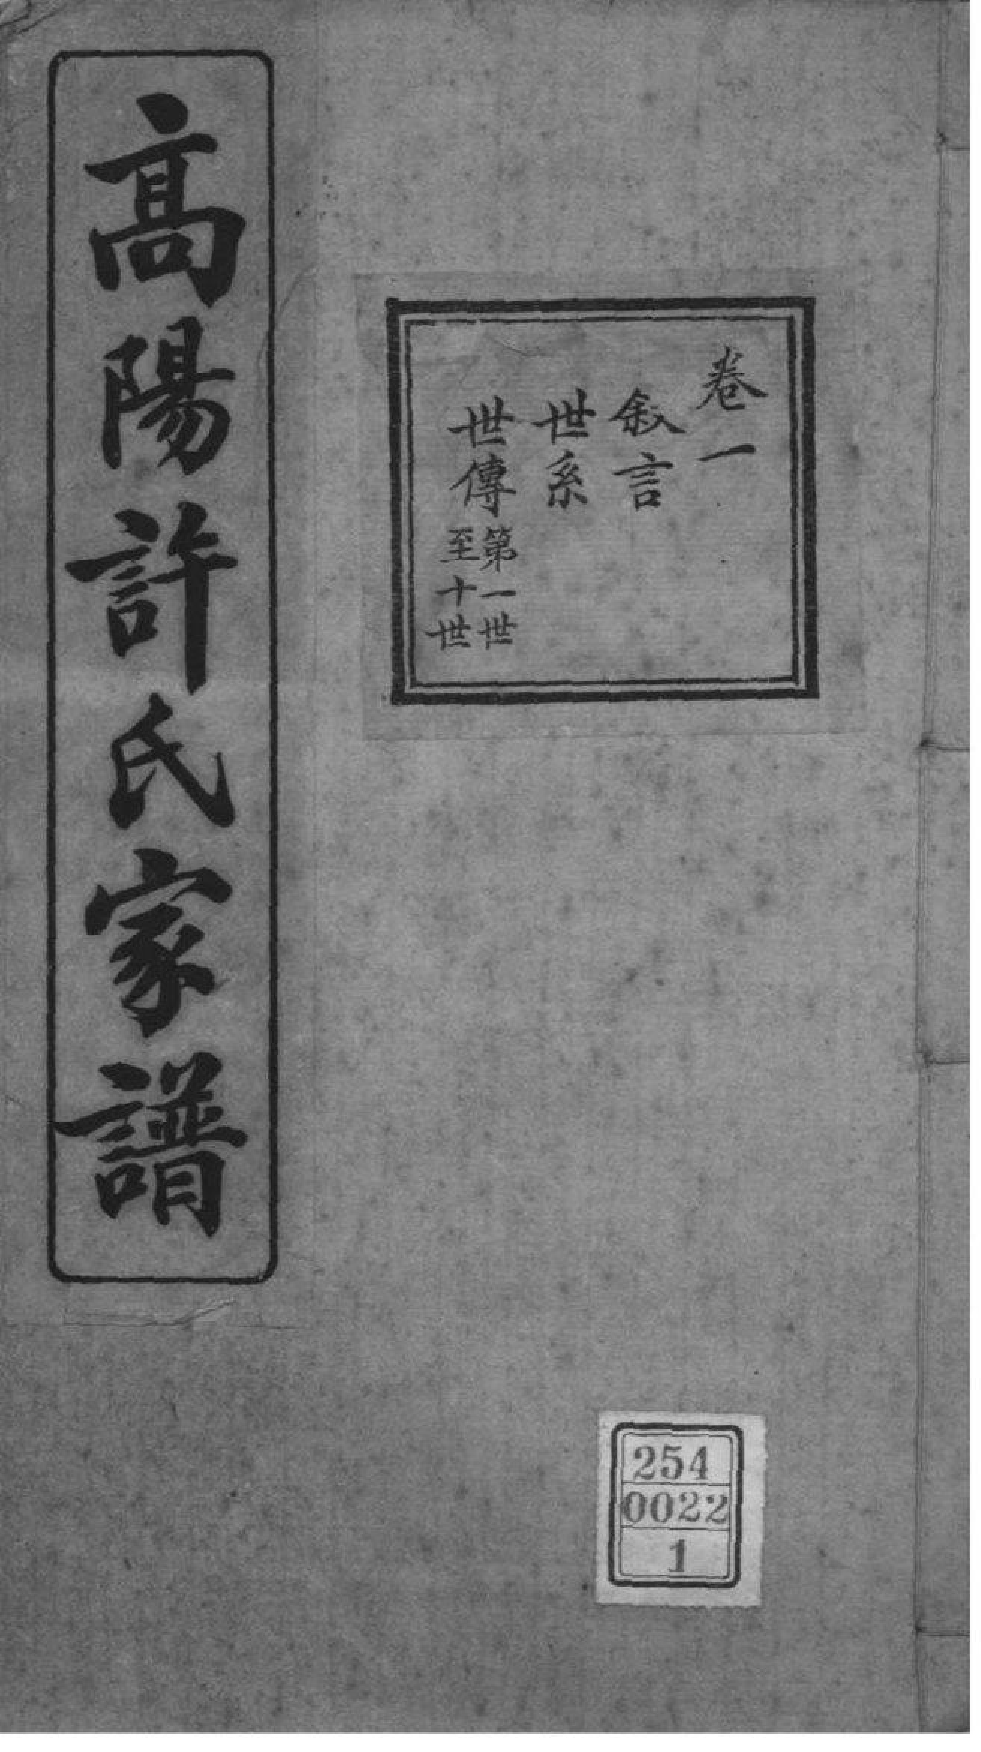 高陽許氏家譜
卷一
敘言
世系
世傳第一世
至十世
254
0022
1